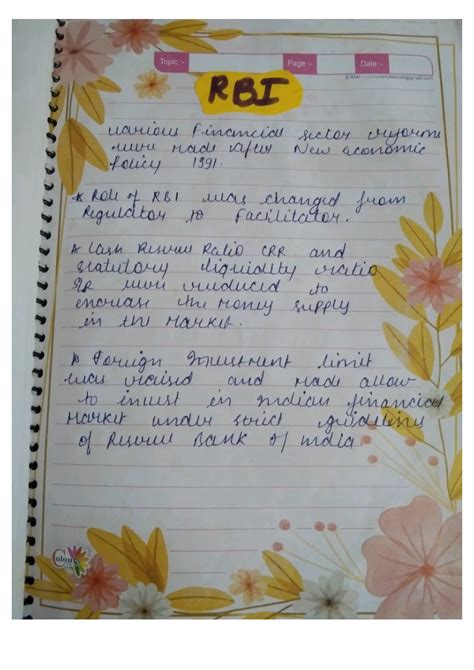 Topic :-
Page :-
Date :-
RBI
various Financial sector reforms
were made after New economic
Policy 1991.
* Role of RBI was changed from
Regulator to Facilitator.
* Cash Reserve Ratio CRR and
statutory liquidity ratio
were reduced to
increase the money supply
in the Market.
* Foreign Investment limit
was raised and made allow
to invest in Indian financial
Market under strict
of Reserve Bank of india.
Colour